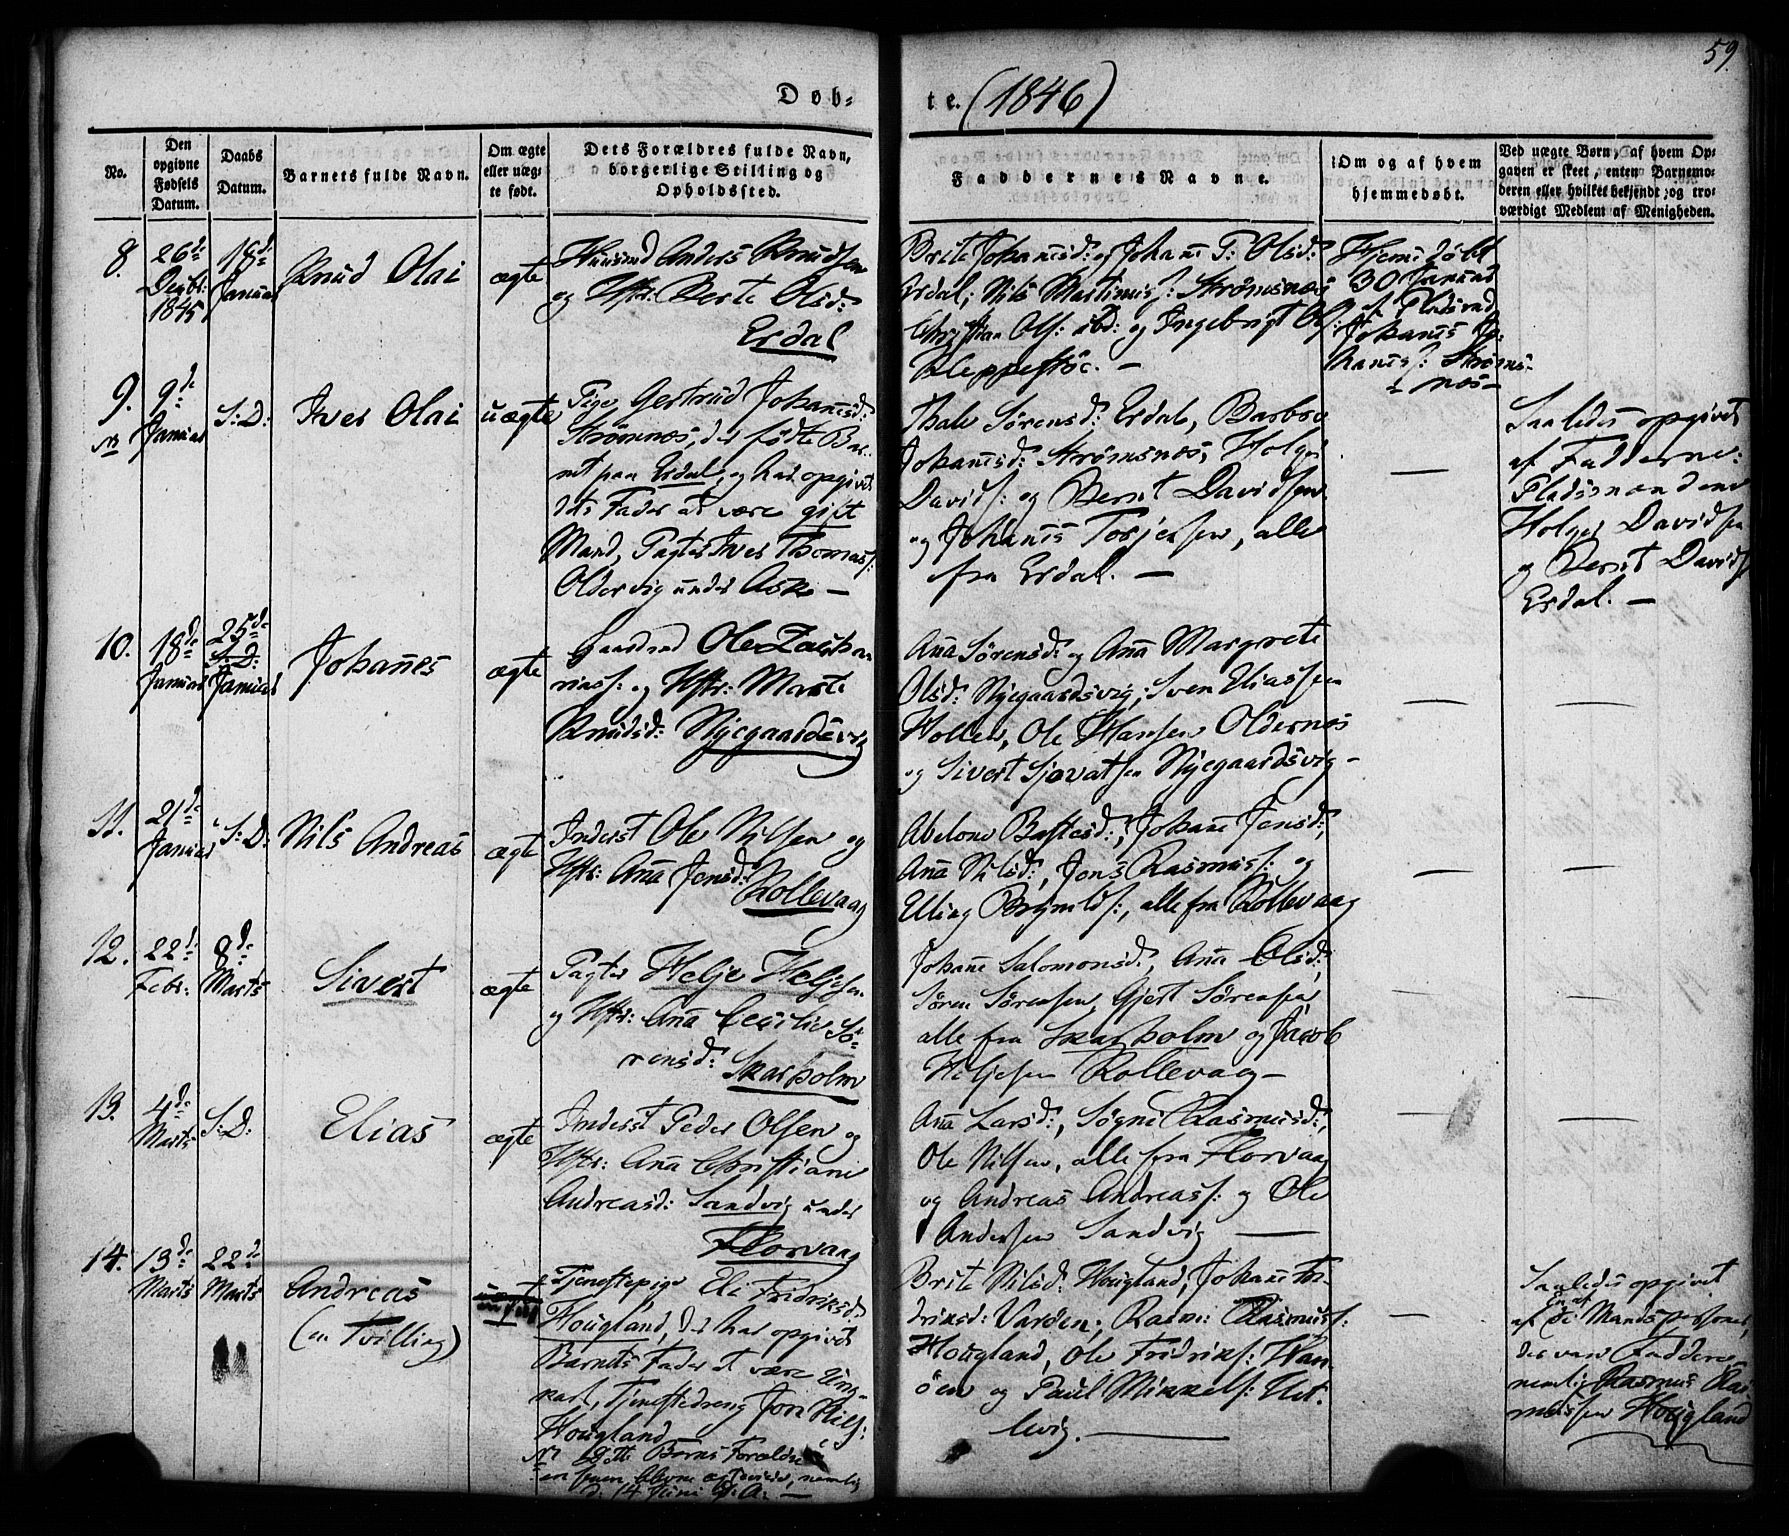 59.
Døb-
te. (1846)
No.
Den
opgivne
Fødsels
Datum.
Daabs
Datum.
Barnets fulde Navn.
Om ægte
eller uæg-
te født.
Dets Forældres fulde Navn,
borgerlige Stilling og
Opholdssted.
Faddernes Navne.
Om og af hvem
hjemmedøbt.
Ved uægte Børn, af hvem Op-
gaven er skeet, enten Barnemo-
deren eller hvilket bekjendt og tro-
værdigt Medlem af Menigheden.
8.
26de
Decbr:
1845
18de
Januar
Knud Olai
ægte
Huusmd Anders Knudsen
og Hstr: Berte Olsd:
Erdal
Brite Johannesd: og Johanne T: Olsd:
Erdal; Nils Martinus s: Strømsnæs
Christian Ols: ibd: og Ingebrigt Ols:
Kleppestøe. —
Hjemedøbt
30 Januar
af Pladsmd
Johannes Jo-
hannes s: Strøms-
næs —
9.
9de
Januar
S: D:
Iver Olai
uægte
Pige Gertrud Johannesd:
Strømsnæs, der fødte Bar-
net paa Erdal, og har opgivet
dets Fader at være gift
Mand, Pagter Iver Thomass:
Oldervig under Ask —
Thale Sørensd: Erdal, Barbro
Johannesd: Strømsnæs, Holger
Davids: og Bernt Davidsen
og Johannes Torjersen, alle
fra Erdal. —
—
Saaledes opgivet
af Fadderne:
Pladsmændene
Holger Davidsen
og Bernt Davids
Erdal. —
10.
18de
Januar
25de
S: D:
Januar
Johannes
ægte
Gaardmd Ole Zacha-
rias s: og Hstr: Marte
Knudsd: Nygaardsvig
Anna Sørensd: og Anna Margrete
Olsd: Nygaardsvig; Sven Eliassen
Holen, Ole Hansen Oldernæs
og Sivert Sjovatsen Nygaardsvig —
—
—
11.
21de
Januar
S: D:
Nils Andreas
ægte
Inderst Ole Nilsen og
Hstr: Anna Jensd:
Rollevaag
Abelone Bastesd:, Johanne Jensd:,
Anna Nilsd:, Jens Rasmus s: og
Elling Brynilds:, alle fra Rollevaag
—
—
12.
22de
Febr:
8de
Marts
Sivert
ægte
Pagter Helje Heljesen
og Hstr: Anna Cecilie Sø-
rensd: Skarholm
Johanne Salomonsd:, Anna Olsd:,
Søren Sørensen, Gjert Sørensen,
alle fra Skarholm og Jacob
Heljesen Rollevaag —
—
—
13.
4de
Marts
S: D:
Elias
ægte
Inderst Peder Olsen og
Hstr: Anna Christiane
Andreasd: Sandvig under
Florvaag
Anna Larsd:, Søgni Rasmusd:,
Ole Nilsen, alle fra Florvaag
og Andreas Andreass: og Ole
Andersen Sandvig —
—
—
14.
13de
Marts
22de
Marts
Andreas
(en Tvilling)
uægte
Tjenestepige Eli Fridriksd:
Hougland, der har opgivet
Barnets Fader at være Ung-
karl, Tjenestedreng Jon Nils:
Hougland
Børns Forældre
14 Juni
Brite Nilsd: Hougland, Johanne Fri-
driksd: Varøen; Rasm: Rasmus s:
Hougland, Ole Fridriks: Han-
øen og Paul Mikkels: Het-
levig. —
—
Saaledes opgivet
af en af de Mandspersoner,
der var Faddere,
nemlig Rasmus Ras-
mussen Hougland